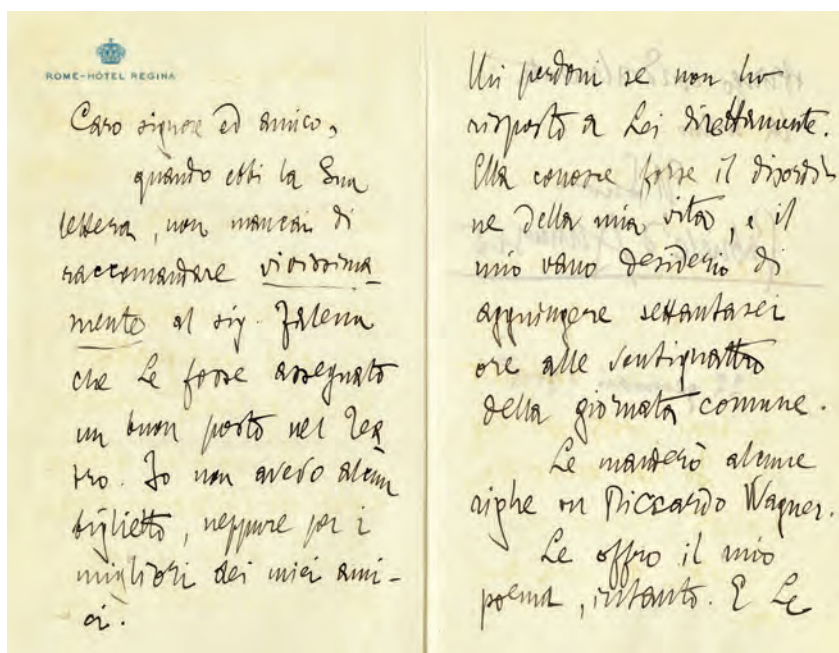 ROME-HÔTEL REGINA
Caro signore ed amico,
quando ebbi la Sua
lettera, non mancai di
raccomandare vivissima-
mente al sig. Falena
che Le fosse assegnato
un buon posto nel Tea
tro. Io non avevo alcun
biglietto, neppure per i
migliori dei miei ami-
ci.
Mi perdoni se non ho
risposto a Lei direttamente.
Ella conosce forse il disordi
ne della mia vita, e il
mio vano desiderio di
aggiungere settantasei
ore alle ventiquattro
della giornata comune.
Le manderò alcune
righe su Riccardo Wagner.
Le offro il mio
poema, intanto. E Le